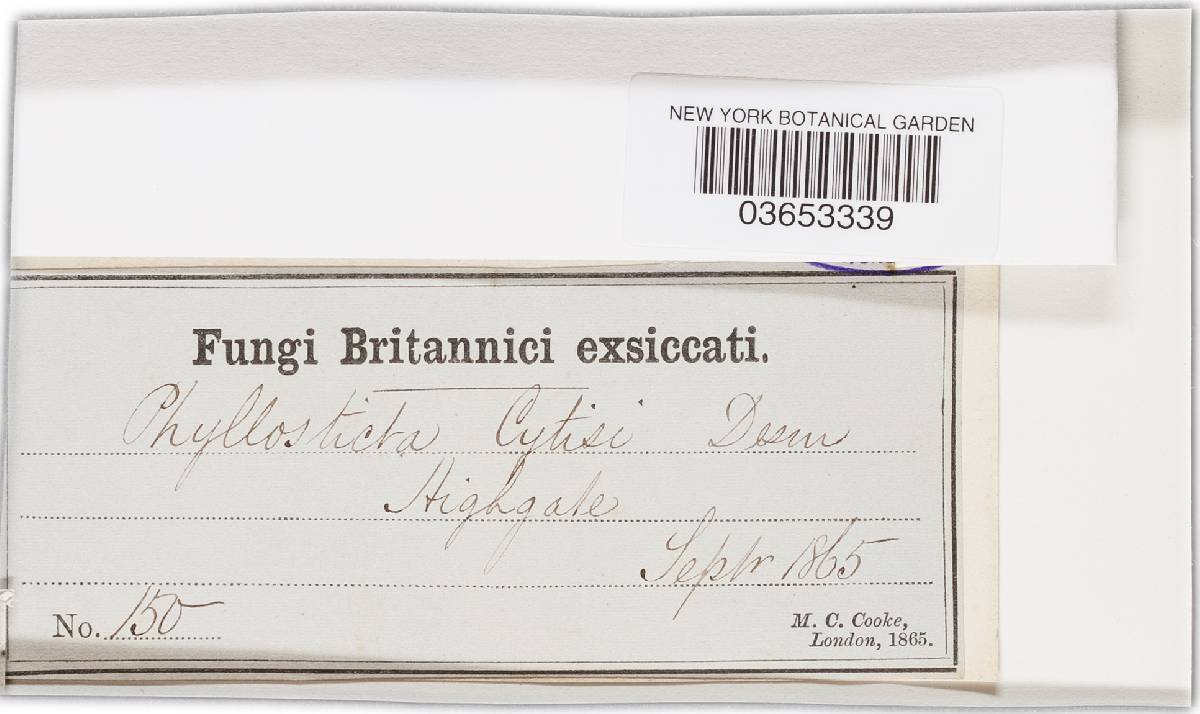 NEW YORK BOTANICAL GARDEN
03653339
Fungi Britannici exsiccati.
Phyllosticta Cytisi Desm
Highgate
Septr 1865
No. 150
M. C. Cooke,
London, 1865.